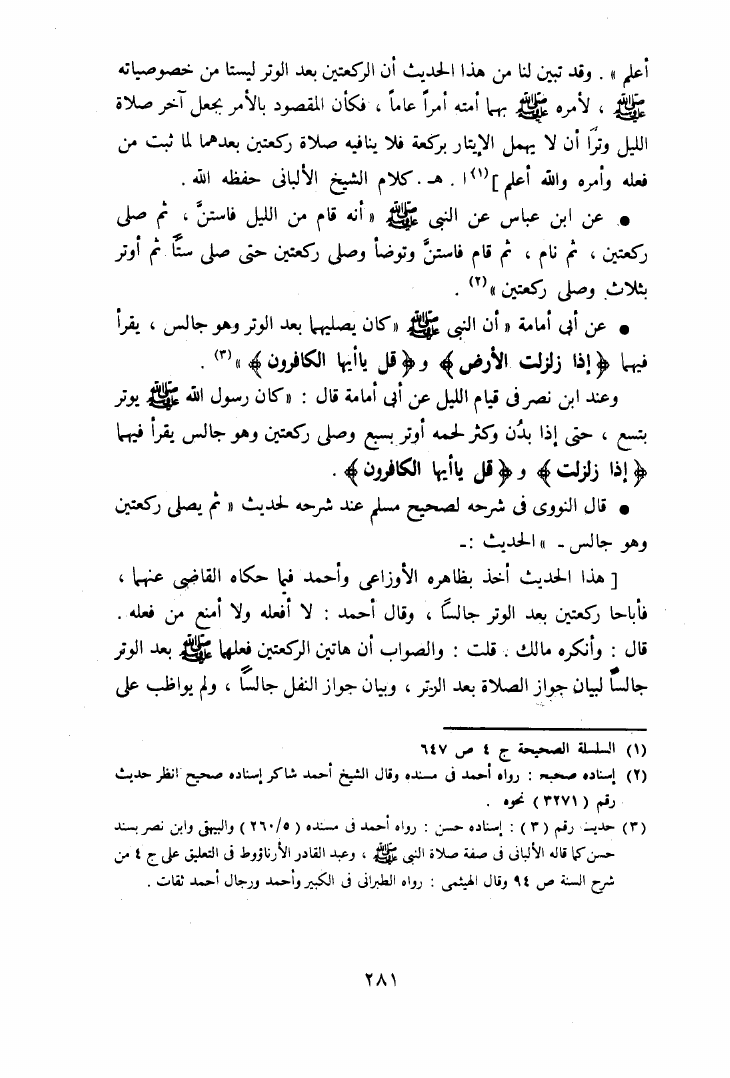 أعلم » . وقد تبين لنا من هذا الحديث أن الركعتين بعد الوتر ليستا من خصوصياته
ﷺ ، لأمره ﷺ بهما أمته أمراً عاماً ، فكأن المقصود بالأمر بجعل آخر صلاة
الليل وترًا أن لا يهمل الإيتار بركعة فلا ينافيه صلاة ركعتين بعدهما لما ثبت من
فعله وأمره والله أعلم ](١) ا . هـ . كلام الشيخ الألبانى حفظه الله .
● عن ابن عباس عن النبى ﷺ « أنه قام من الليل فاستنَّ ، ثم صلى
ركعتين ، ثم نام ، ثم قام فاستنَّ وتوضأ وصلى ركعتين حتى صلى ستًّا ثم أوتر
بثلاث وصلى ركعتين »(٢) .
● عن أبى أمامة « أن النبى ﷺ «كان يصليهما بعد الوتر وهو جالس ، يقرأ
فيهما ﴿إذا زلزلت الأرض﴾ و﴿قل ياأيها الكافرون﴾ »(٣) .
وعند ابن نصر فى قيام الليل عن أبى أمامة قال : «كان رسول الله ﷺ يوتر
بتسع ، حتى إذا بدُن وكثر لحمه أوتر بسبع وصلى ركعتين وهو جالس يقرأ فيهما
﴿إذا زلزلت﴾ و﴿قل ياأيها الكافرون﴾ .
● قال النووى فى شرحه لصحيح مسلم عند شرحه لحديث « ثم يصلى ركعتين
وهو جالس ـ » الحديث :ـ
[ هذا الحديث أخذ بظاهره الأوزاعى وأحمد فيما حكاه القاضى عنهما ،
فأباحا ركعتين بعد الوتر جالسًا ، وقال أحمد : لا أفعله ولا أمنع من فعله .
قال : وأنكره مالك . قلت : والصواب أن هاتين الركعتين فعلهما ﷺ بعد الوتر
جالسًا لبيان جواز الصلاة بعد الوتر ، وبيان جواز النفل جالسًا ، ولم يواظب على
(١) السلسلة الصحيحة ج ٤ ص ٦٤٧
(٢) إسناده صحيح : رواه أحمد فى مسنده وقال الشيخ أحمد شاكر إسناده صحيح انظر حديث
رقم (٣٢٧١) نحوه .
(٣) حديث رقم (٣) : إسناده حسن : رواه أحمد فى مسنده (٢٦٠/٥) والبيهقى وابن نصر بسند
حسن كما قاله الألبانى فى صفة صلاة النبى ﷺ ، وعبد القادر الأرناؤوط فى التعليق على ج ٤ من
شرح السنة ص ٩٤ وقال الهيثمى : رواه الطبرانى فى الكبير وأحمد ورجال أحمد ثقات .
٢٨١